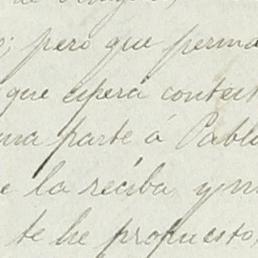 ; pero que perma
que espera contest
una parte á Pablo
e la reciba y m
te he propuesto,